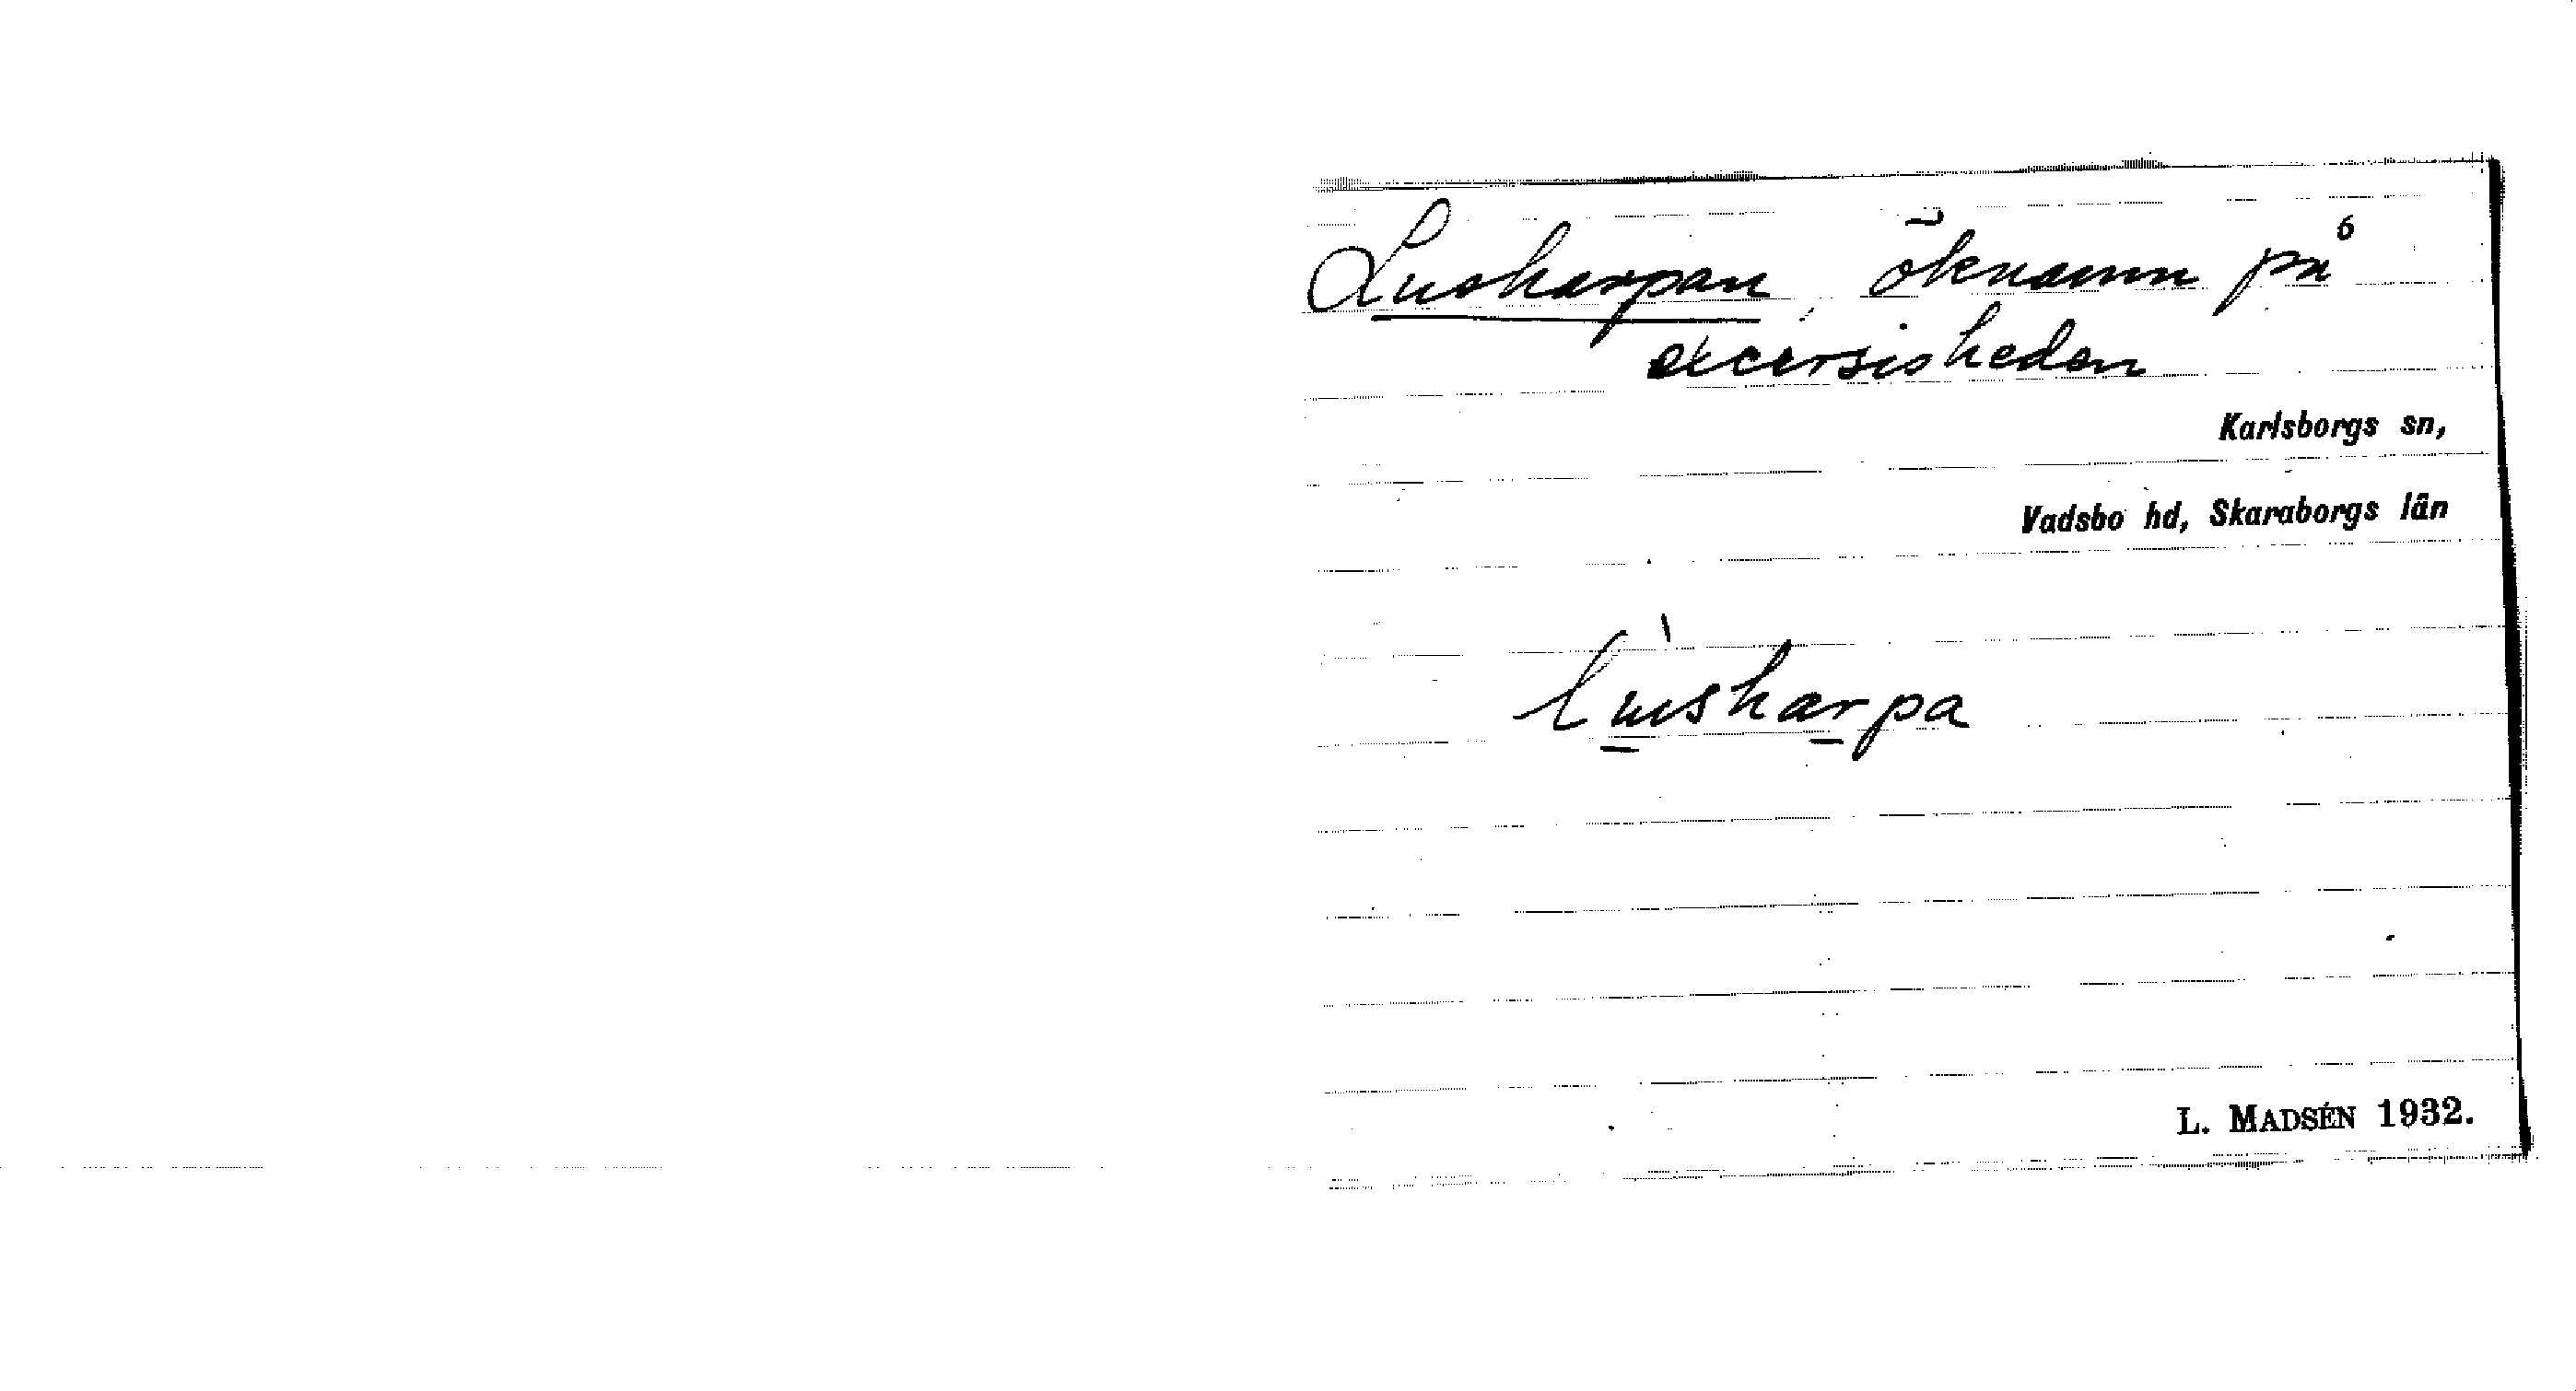 Lusharpan, öknamn på
excersisheden
Karlsborgs sn,
Vadsbo hd, Skaraborgs län
lùsharpa
L. MADSÉN 1932.